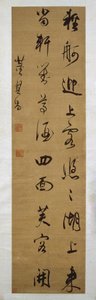 輕舸迎上客悠〻湖上來
當軒對尊酒四面芙蓉開
董其昌